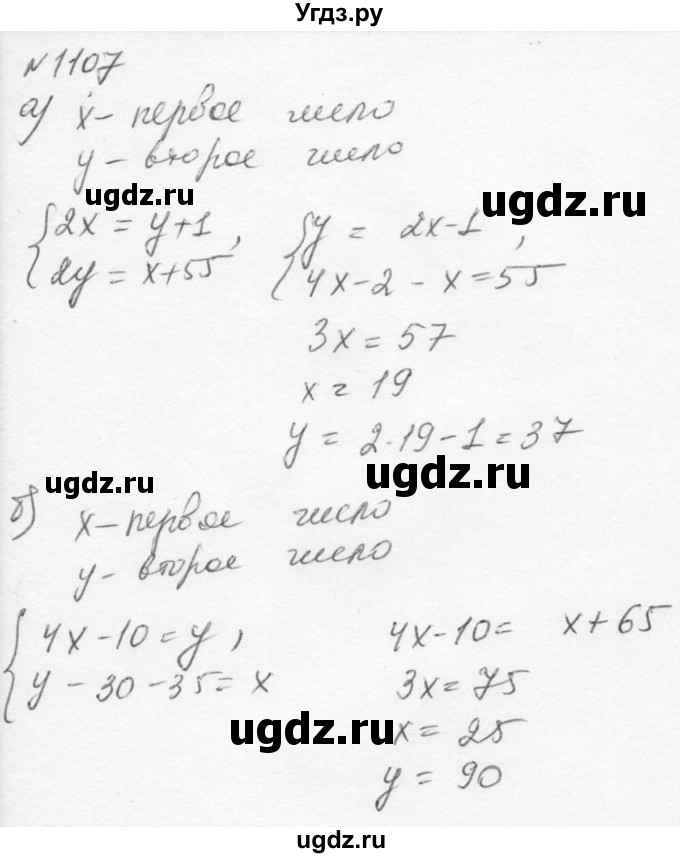 Угдз.ру
№1107
а) x - первое число
y - второе число
ugdz.ru
ugdz.ru
{2x = y+1, {y = 2x-1,
{2y = x+55 {4x-2-x=55
3x = 57
x = 19
y = 2·19-1=37
ugdz.ru
ugdz.ru
б) x - первое число
y - второе число
{4x-10=y, 4x-10= x+65
{y-30-35=x 3x=75
ugdz.ru
x = 25
y = 90
ugdz.ru